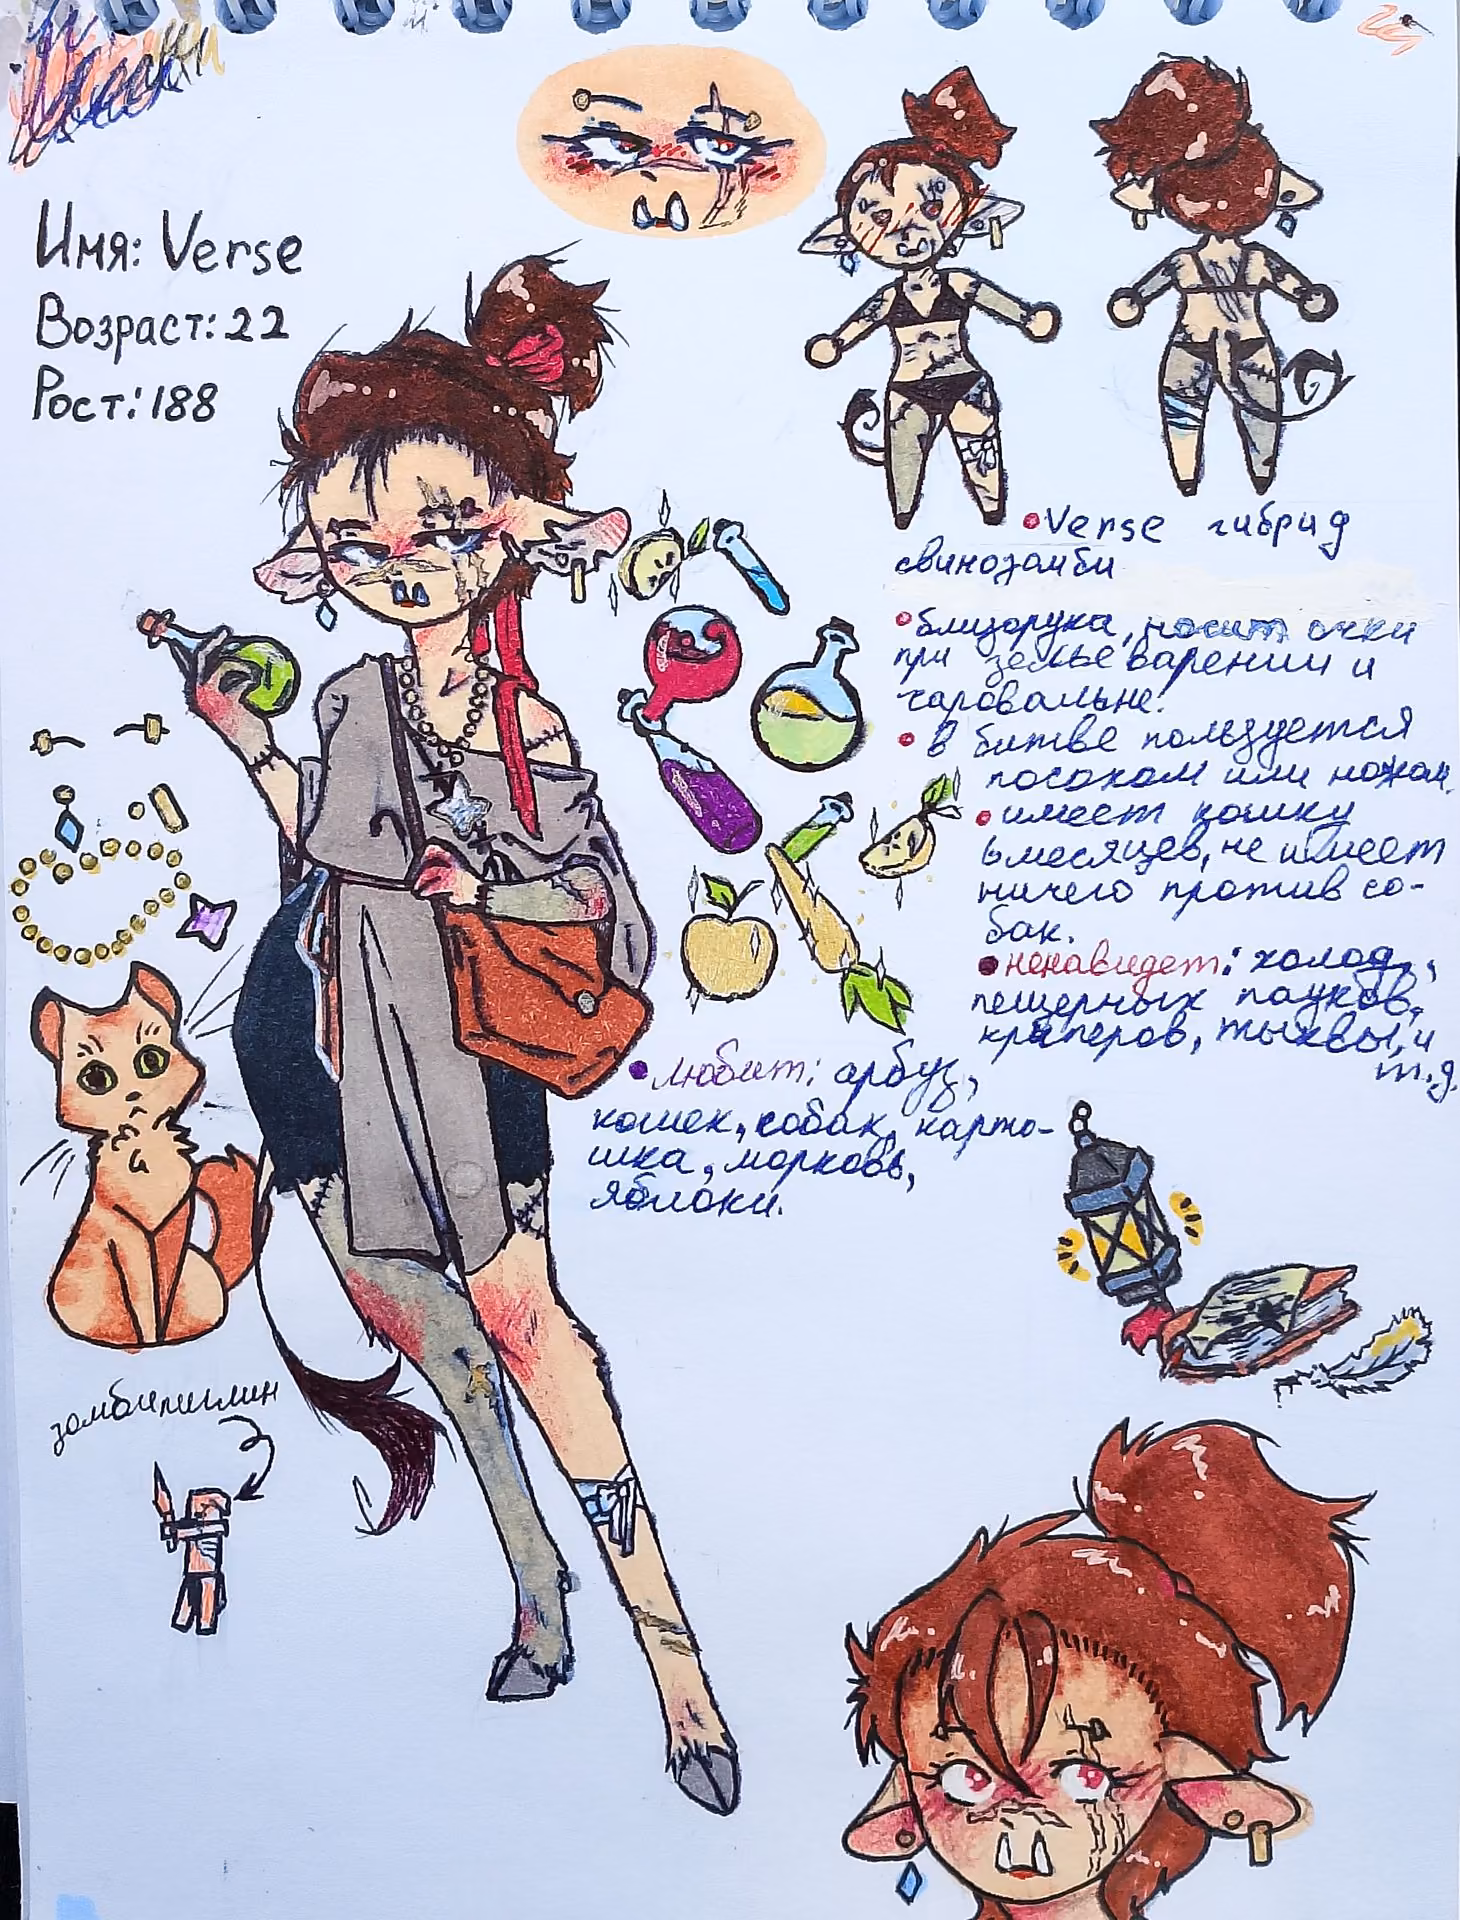 Имя: Verse
Возраст: 22
Рост: 188
Verse гибрид
свинозомби
близорука, носит очки
при зельеварении и
чаровальне.
в битве пользуется
посохом или ножом.
имеет кошку
6 месяцев, не имеет
ничего против со-
бак.
ненавидет: холод,
пещерных пауков,
криперов, тыквы, и
т.д.
любит: арбуз,
кошек, собак, карто-
шка, морковь,
яблоки.
зомбипиглин